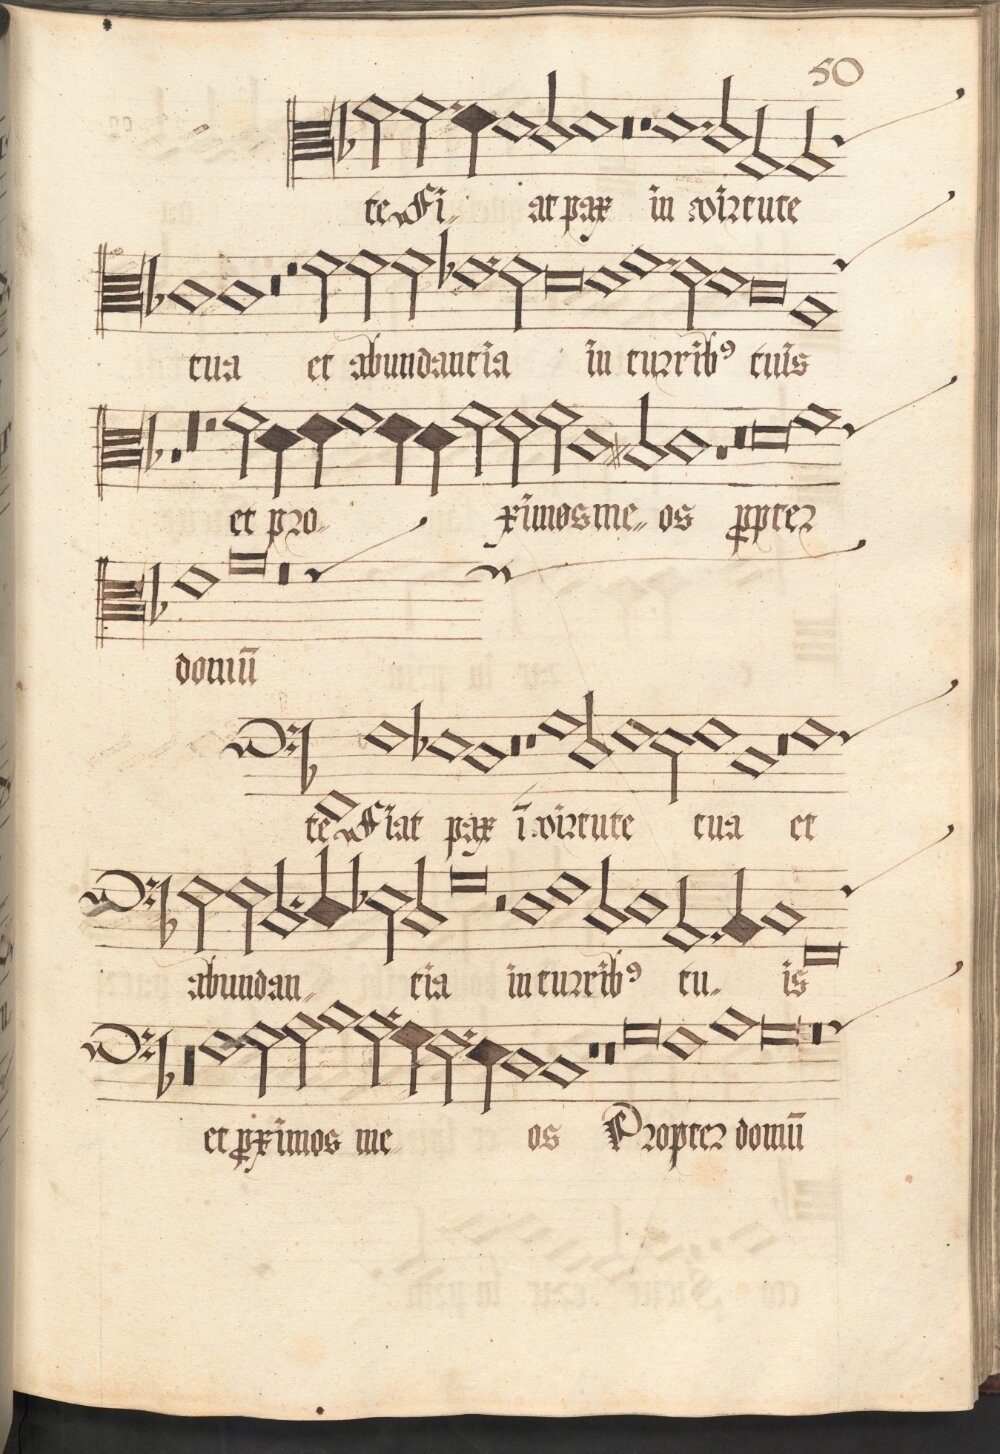 50
te Fi at pax in virtute
tua et abundantia in turribꝰ tuis
et pro ximos me os ꝓpter
domū
te Fiat pax ī virtute tua et
abundan tia in turribꝰ tu is
et ꝓximos me os Propter domū